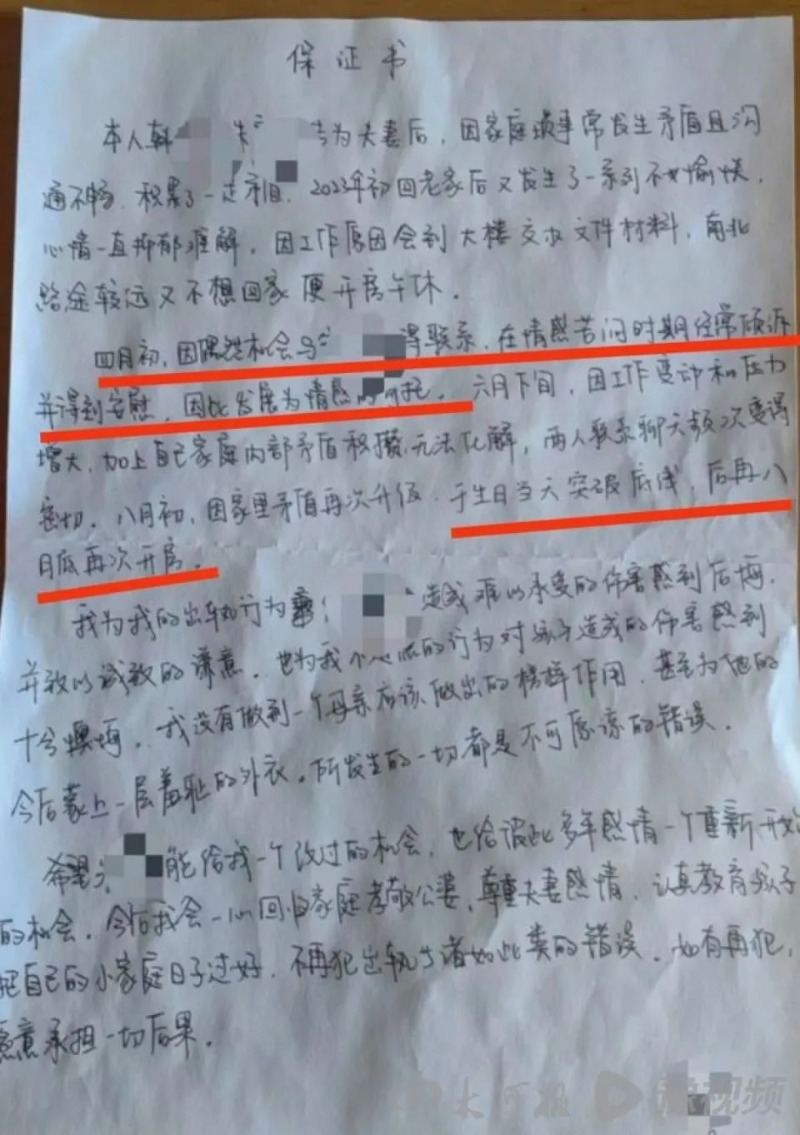 保证书
本人韩 为夫妻后，因家庭琐事常发生矛盾且沟
通不畅，积累了一定 2023年初回老家后又发生了一系列不愉快，
心情一直抑郁难解，因工作原因会到大楼交办文件材料，南北
路途较远又不想回家便开房午休。
四月初，因偶然机会与 得联系，在情感苦闷时期经常倾诉
并得到安慰，因此发展为情感的 托。六月下旬，因工作变动和压力
增大，加上自己家庭内部矛盾积攒无法化解，两人联系聊天频次变得
密切。八月初，因家里矛盾再次升级，于生日当天突破底线，后再八
月底再次开房。
我为我的出轨行为 造成难以承受的伤害感到后悔，
并致以诚致的谦意，也为我不 的行为对孩子造成的伤害感到
十分懊悔，我没有做到一个母亲应该做出的榜样作用，甚至为他的
今后蒙上一层羞耻的外衣，所发生的一切都是不可原谅的错误。
希望 能给我一个改过的机会，也给彼此多年感情一个重新开始
的机会，今后我会一心回归家庭孝敬公婆，尊重夫妻感情，认真教育孩子
把自己的小家庭日子过好，不再犯出轨 诸如此类的错误，如有再犯，
愿意承担一切后果。
大河报 视频